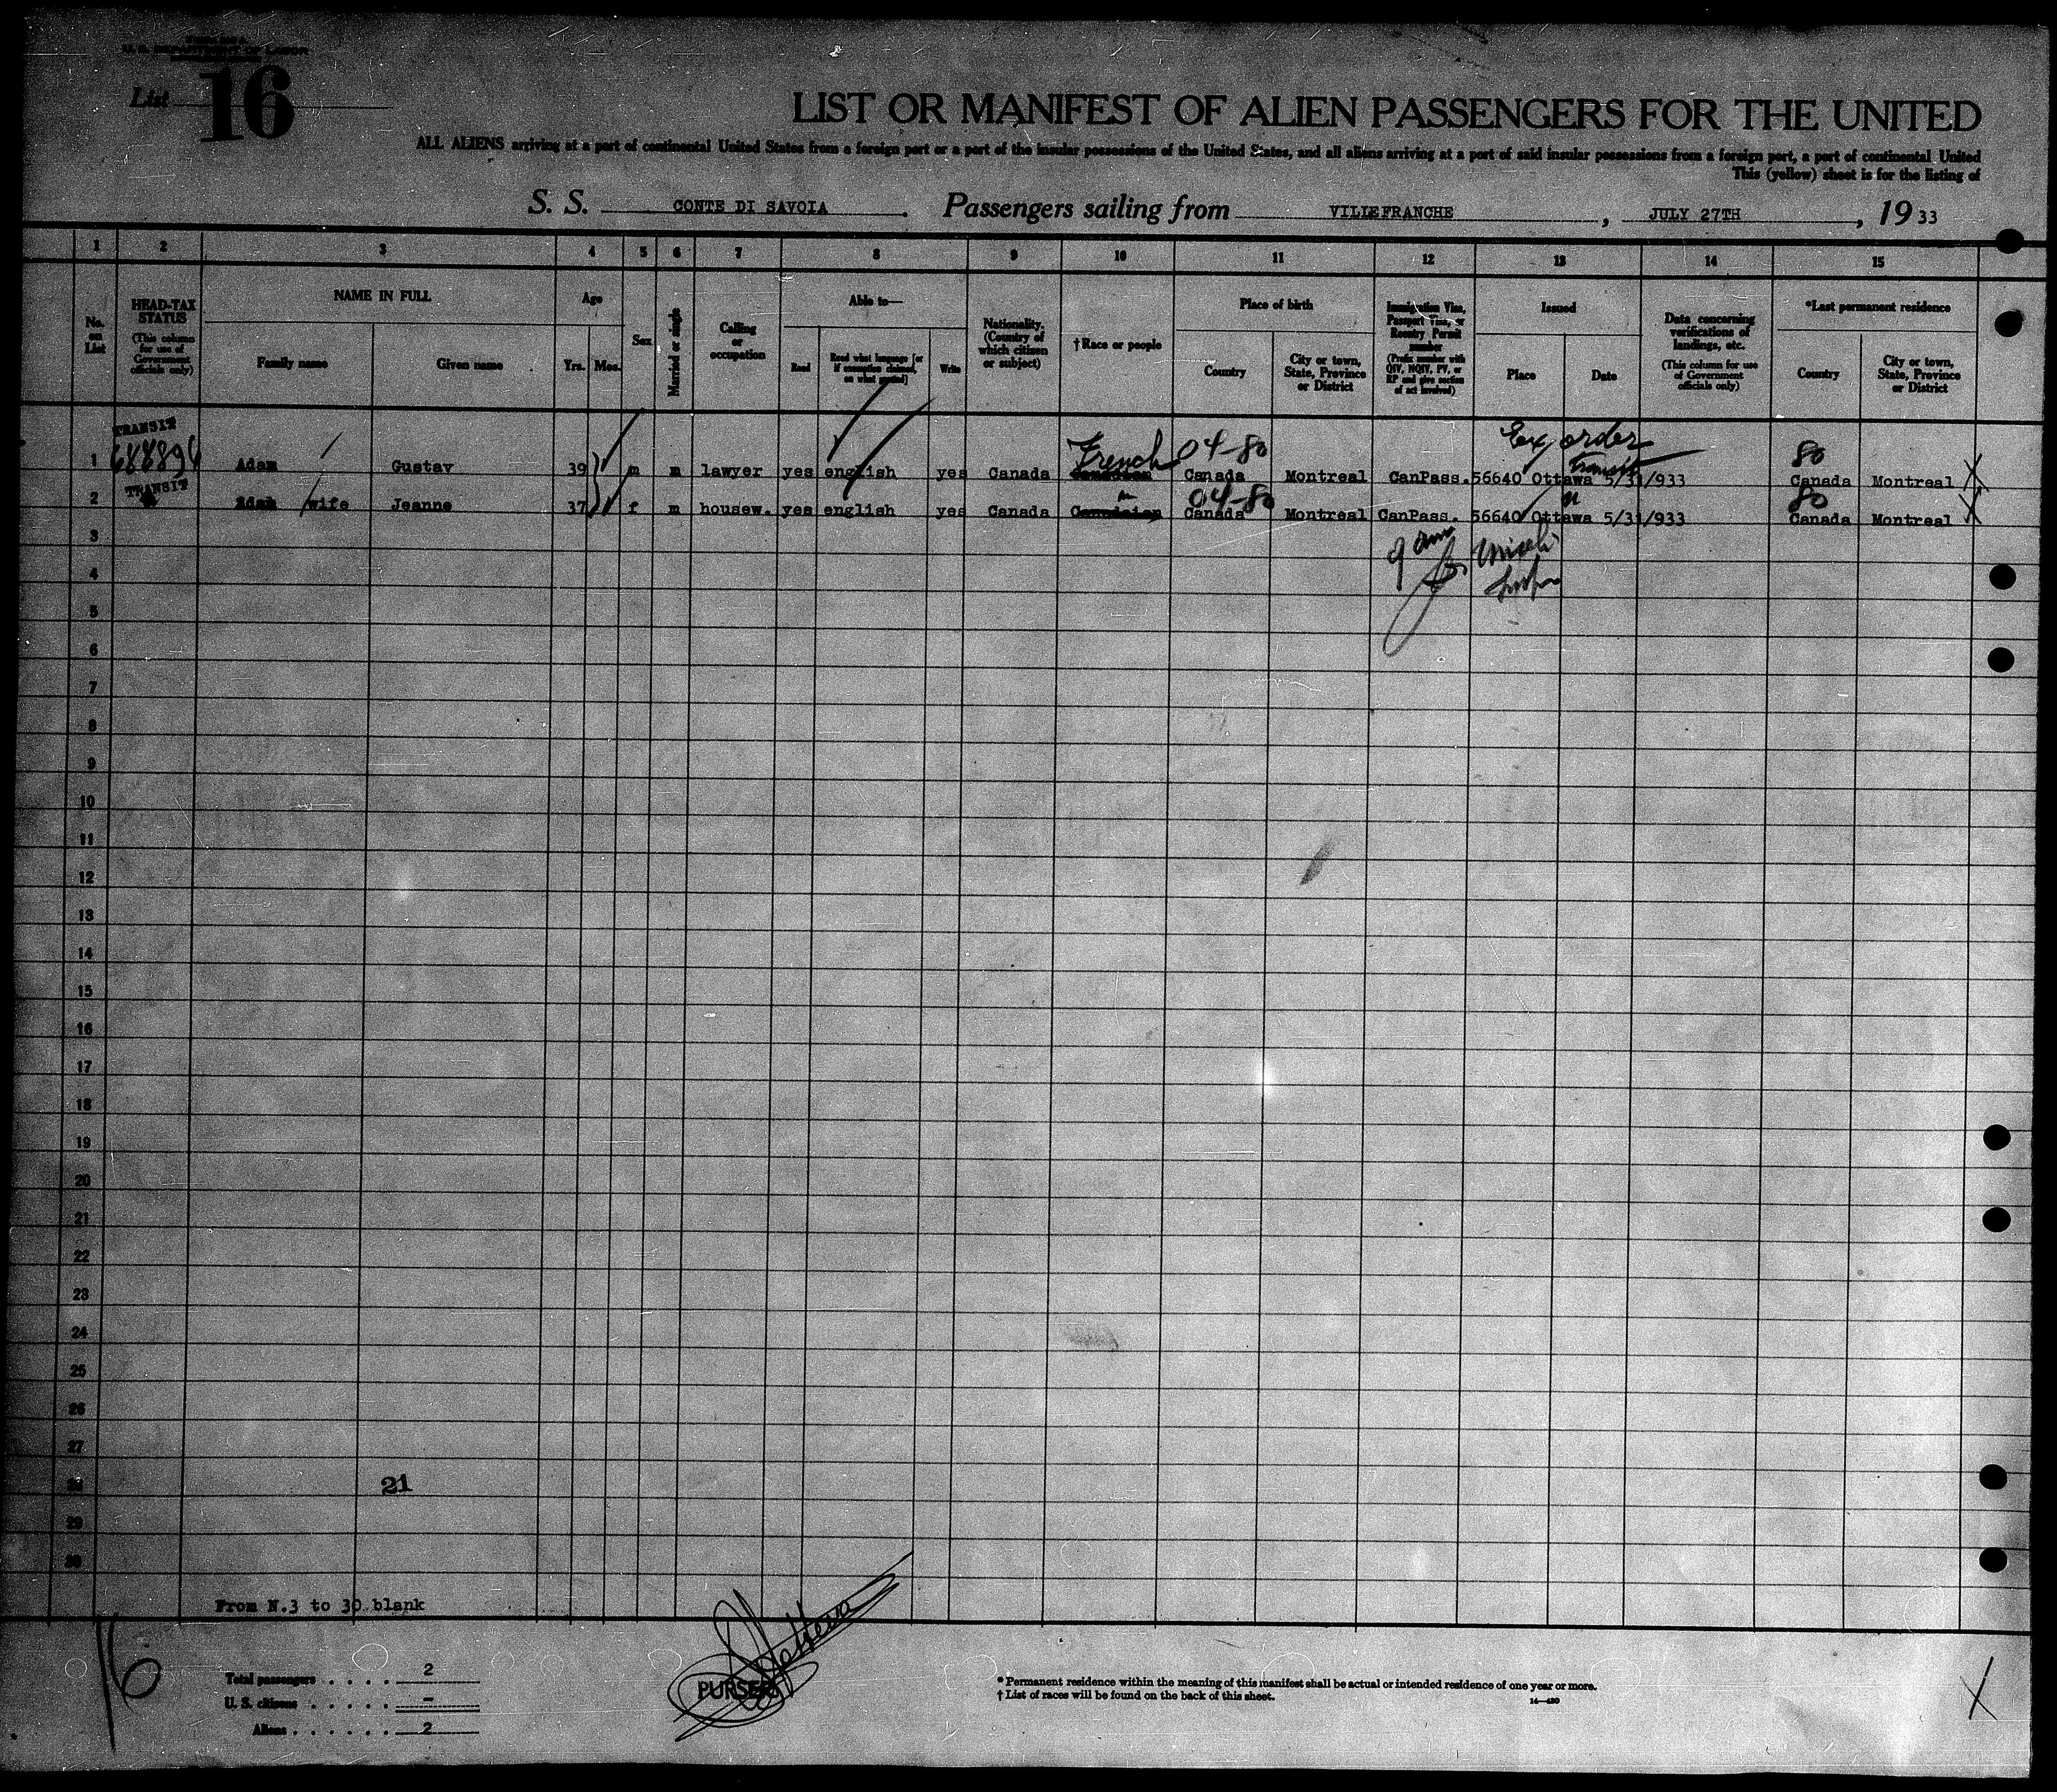 U. S. DEPARTMENT OF LABOR
List 16
LIST OR MANIFEST OF ALIEN PASSENGERS FOR THE UNITED
ALL ALIENS arriving at a port of continental United States from a foreign port or a port of the insular possessions of the United States, and all aliens arriving at a port of said insular possessions from a foreign port, a port of continental United
This (yellow) sheet is for the listing of
S. S. CONTE DI SAVOIA. Passengers sailing from VILLEFRANCHE, JULY 27TH, 1933
1 2 3 4 5 6 7 8 9 10 11 12 13 14 15
No. on List
HEAD-TAX STATUS
(This column for use of Government officials only)
NAME IN FULL
Family name Given name
Age
Yrs. Mos.
Sex
Married or single
Calling or occupation
Able to—
Read Read what language [or if exemption claimed, on what ground] Write
Nationality. (Country of which citizen or subject)
†Race or people
Place of birth
Country City or town, State, Province or District
Immigration Visa, Passport Visa, or Reentry Permit number
(Prefix number with QIV, NQIV, PV, or RP and give section of act involved)
Issued
Place Date
Data concerning verifications of landings, etc.
(This column for use of Government officials only)
*Last permanent residence
Country City or town, State, Province or District
TRANSIT French 04-80 Ex order 80
1 Adam Gustav 39 m m lawyer yes english yes Canada Canada Montreal CanPass. 56640 Ottawa 5/31/933 Canada Montreal X
transit
TRANSIT 04-80 80
2 Adam wife Jeanne 37 f m housew. yes english yes Canada Canadian Canada Montreal CanPass. 56640 Ottawa 5/31/933 Canada Montreal X
3
4
5
6
7
8
9
10
11
12
13
14
15
16
17
18
19
20
21
22
23
24
25
26
27
28 21
29
30
From N.3 to 30 blank
16
Total passengers . . . . 2
U. S. citizens . . . . . –
Aliens . . . . . . 2
PURSER
* Permanent residence within the meaning of this manifest shall be actual or intended residence of one year or more.
† List of races will be found on the back of this sheet.
14—430
X